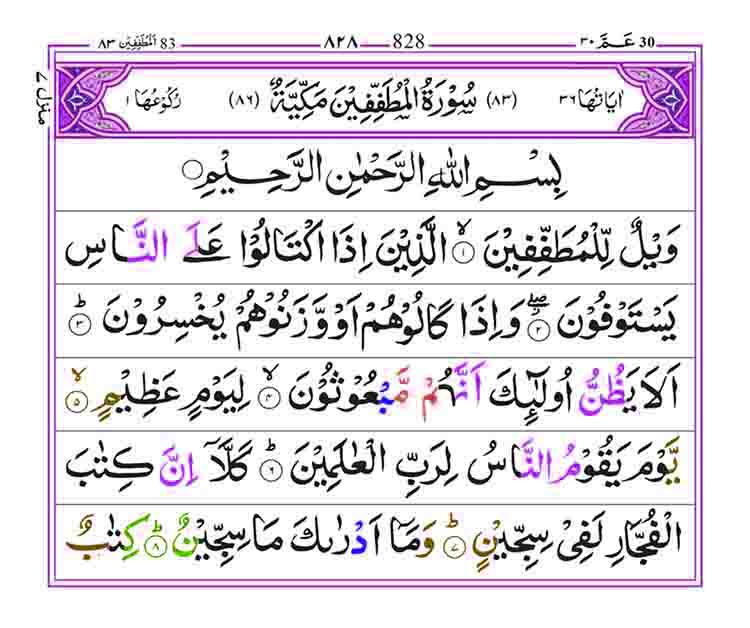 عَمَّ ٣٠ 30 ٨٢٨ 828 اَلْمُطَفِّفِيْن ٨٣ 83
منزل ٧
اٰيَاتُهَا ٣٦ (٨٣) سُوْرَةُ الْمُطَفِّفِيْنَ مَكِّيَّةٌ (٨٦) رُكُوْعُهَا ١
بِسْمِ اللّٰهِ الرَّحْمٰنِ الرَّحِيْمِ
وَيْلٌ لِّلْمُطَفِّفِيْنَ ۙ﴿١﴾ الَّذِيْنَ اِذَا اكْتَالُوْا عَلَى النَّاسِ
يَسْتَوْفُوْنَ ۖ﴿٢﴾ وَاِذَا كَالُوْهُمْ اَوْ وَّزَنُوْهُمْ يُخْسِرُوْنَ ؕ﴿٣﴾
اَلَا يَظُنُّ اُولٰٓئِكَ اَنَّهُمْ مَّبْعُوْثُوْنَ ۙ﴿٤﴾ لِيَوْمٍ عَظِيْمٍ ۙ﴿٥﴾
يَّوْمَ يَقُوْمُ النَّاسُ لِرَبِّ الْعٰلَمِيْنَ ؕ﴿٦﴾ كَلَّاۤ اِنَّ كِتٰبَ
الْفُجَّارِ لَفِيْ سِجِّيْنٍ ؕ﴿٧﴾ وَمَاۤ اَدْرٰىكَ مَا سِجِّيْنٌ ؕ﴿٨﴾ كِتٰبٌ